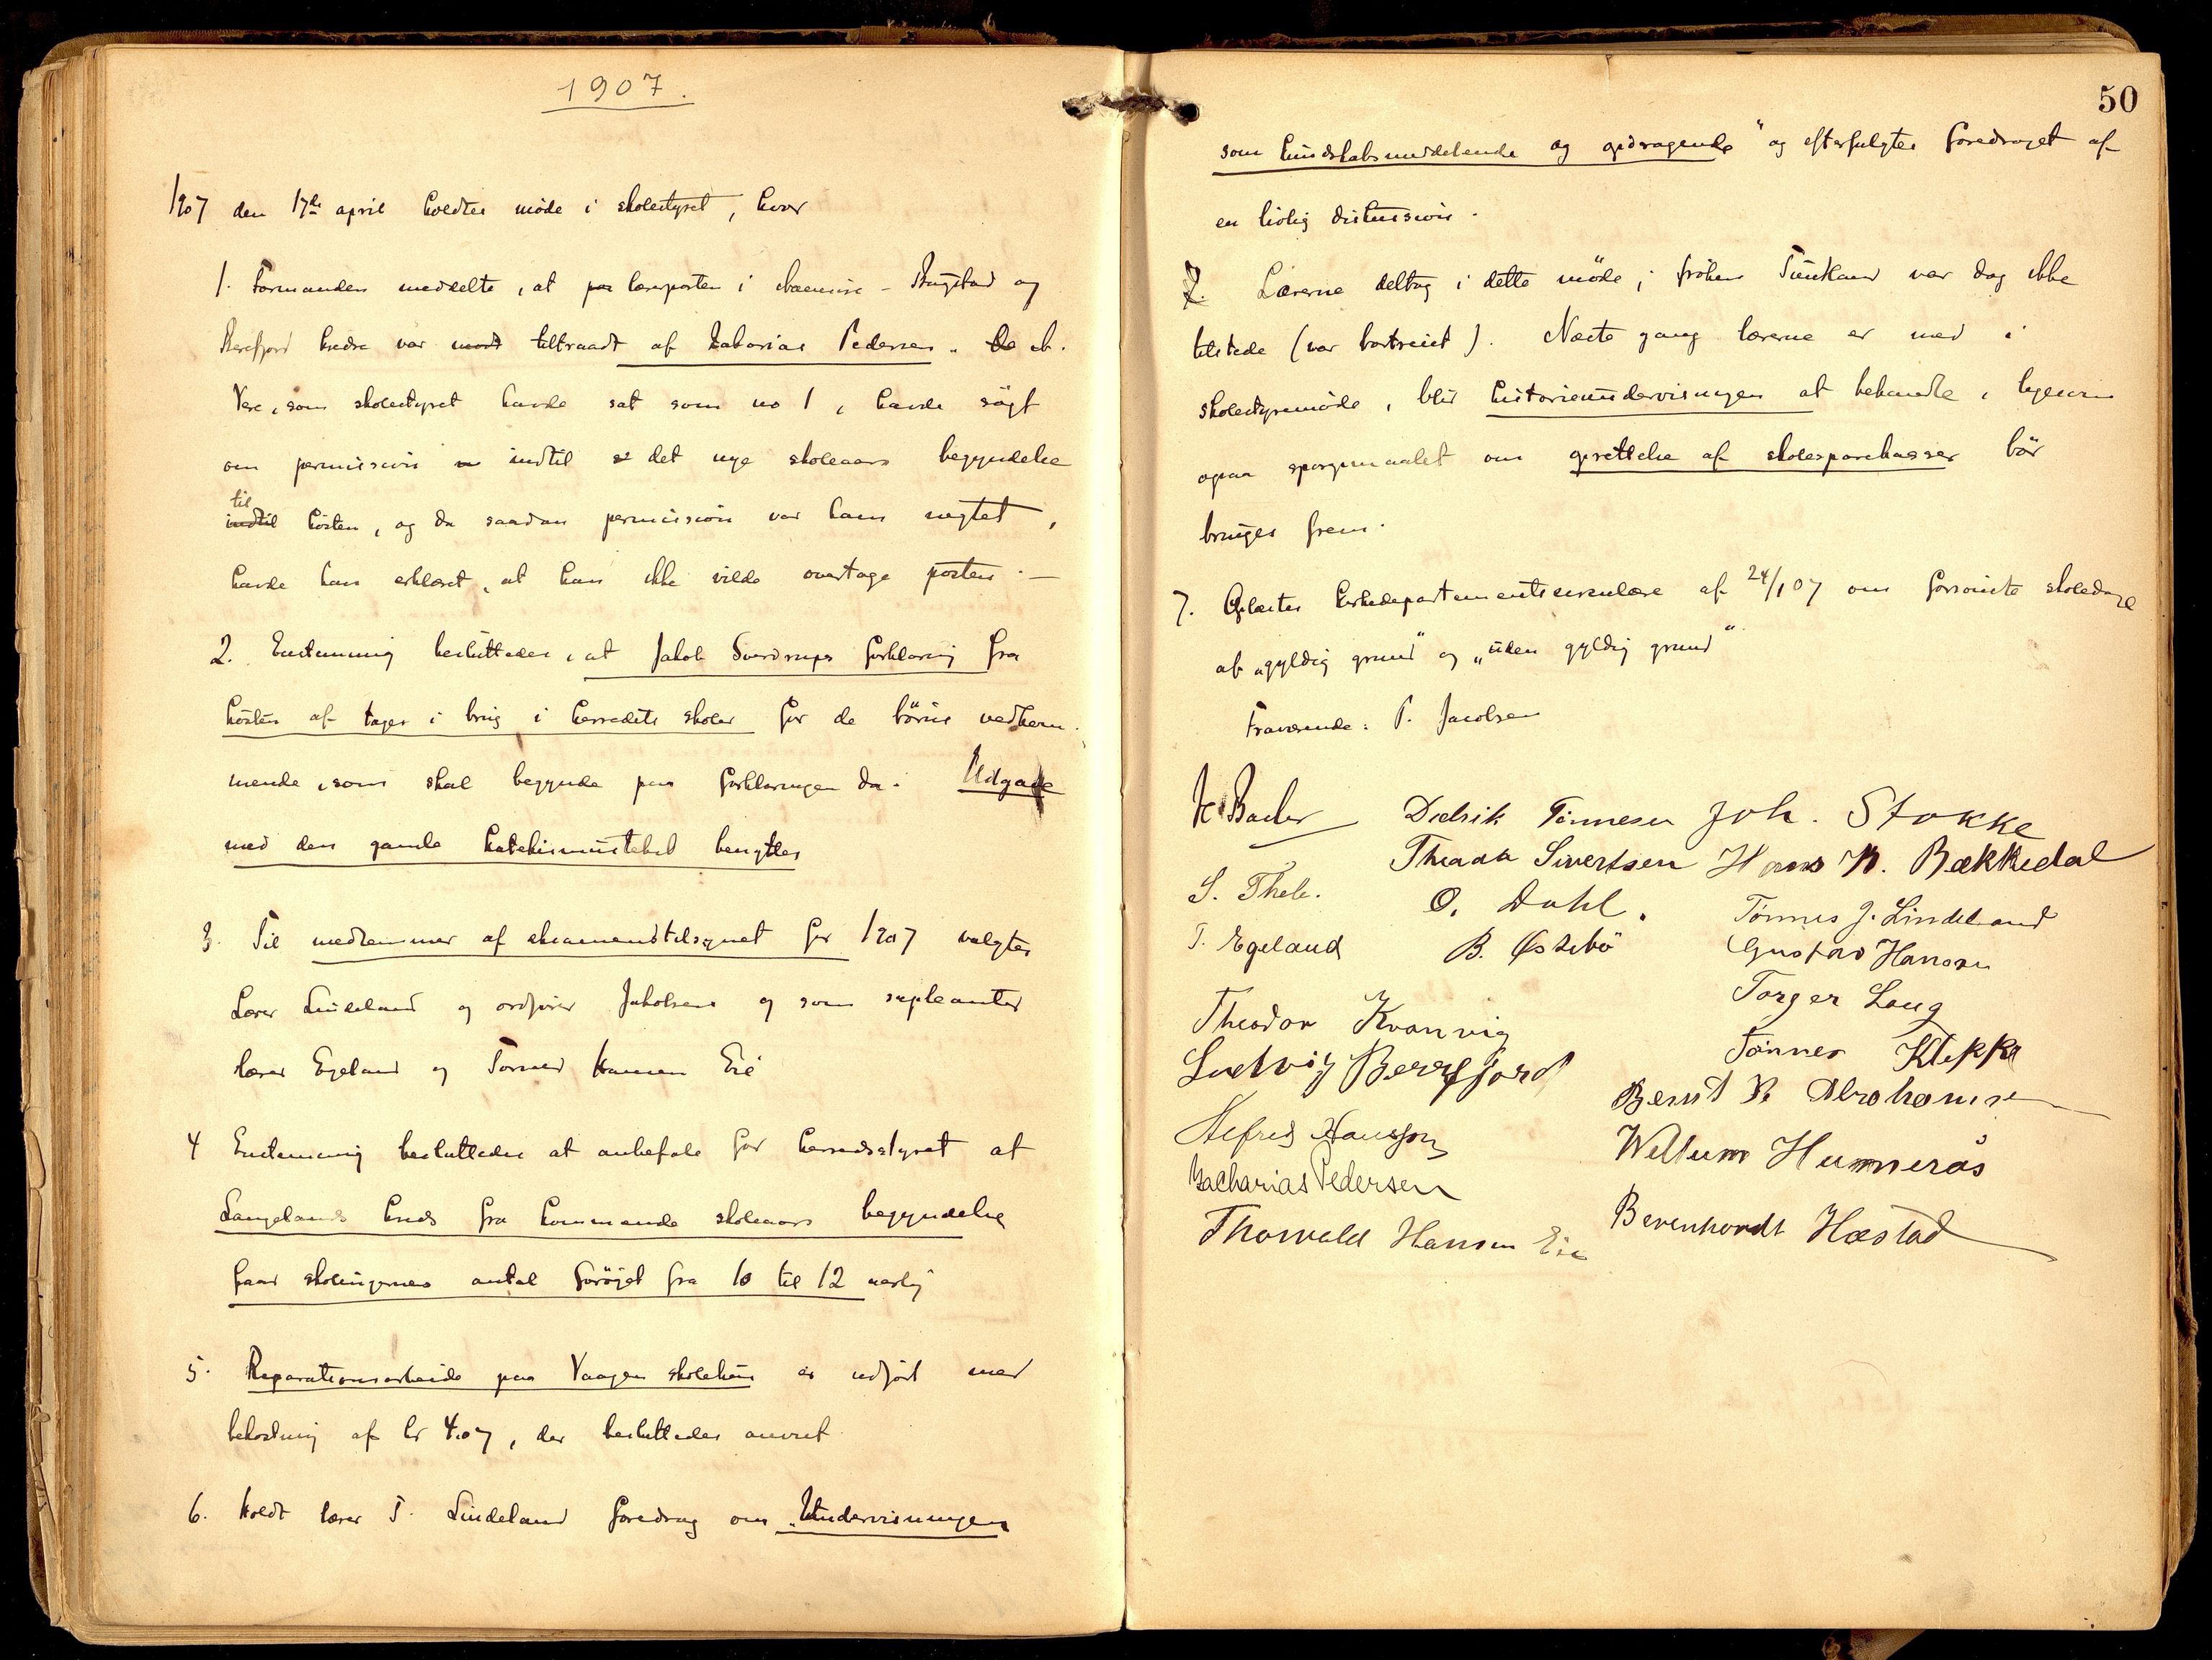 1907.
1907 den 17de april holdtes møde i skolestyret, hvor
1. Formanden meddelte, at paa lærerposten i Bugstad og
kredse var tiltraadt af Zakarias Pedersen.
som skolestyret havde sat som no 1, havde søgt
om permission indtil det nye skoleaars begyndelse
til
indtil høsten, og da saadan permission var ham negtet,
havde han erklæret, at han ikke vilde overtage posten. —
2. Enstemmig besluttedes, at Jakob Sverdrups forklaring fra
høsten af tages i brug i herredets skoler for de børns vedkom-
mende, som skal begynde paa forklaringen da. Udgave
med den gamle katekismustekst benyttes
3. Til medlemmer af eksamenstilsynet for 1907 valgtes
Lærer Lindeland og ordfører Jakobsen og som supleanter
lærer Egeland og Hansen Eie
4 Enstemmig besluttedes at anbefale for herredsstyret at
Langelands kreds fra kommende skoleaars begyndelse
faar skoleugernes antal forøget fra 10 til 12 aarlig
5. Reparationsarbeide paa Vaagen skolehus er udført med
bekostning af kr 4.07, der besluttedes anvist
6. Holdt lærer T. Lindeland foredrag om „Undervisningen
50
som kundskabsmeddelende og opdragende" og efterfulgtes foredraget af
en livlig diskussion.
7. Lærerne deltog i dette møde; frøken var dog ikke
tilstede (var bortreist). Næste gang lærerne er med i
skolestyremøde, blir historieundervisningen at behandle, ligesom
ogsaa spørgsmaalet om oprettelse af skolesparekasser bør
bringes frem.
7. Oplæstes kirkedepartementscirculære af 24/1 07 om forsømte skoledage
af „gyldig grund" og „uden gyldig grund"
Fraværende: P. Jacobsen
Didrik Tønnesen Joh. Stokke
Sivertsen Hans K. Bækkedal
S. Thele. O. Dahl. Tønnes J. Lindeland
T. Egeland B. Østebø Gustav Hansen
Theodor Kvanvig Torger Laug
Ludvig Berrefjord Tønnes Kleppe
Alfred Hansson Bernt B Abrahamsen
Zacharias Pedersen Willum Hummerås
Thorvald Hansen Eie Berenhardt Hæstad